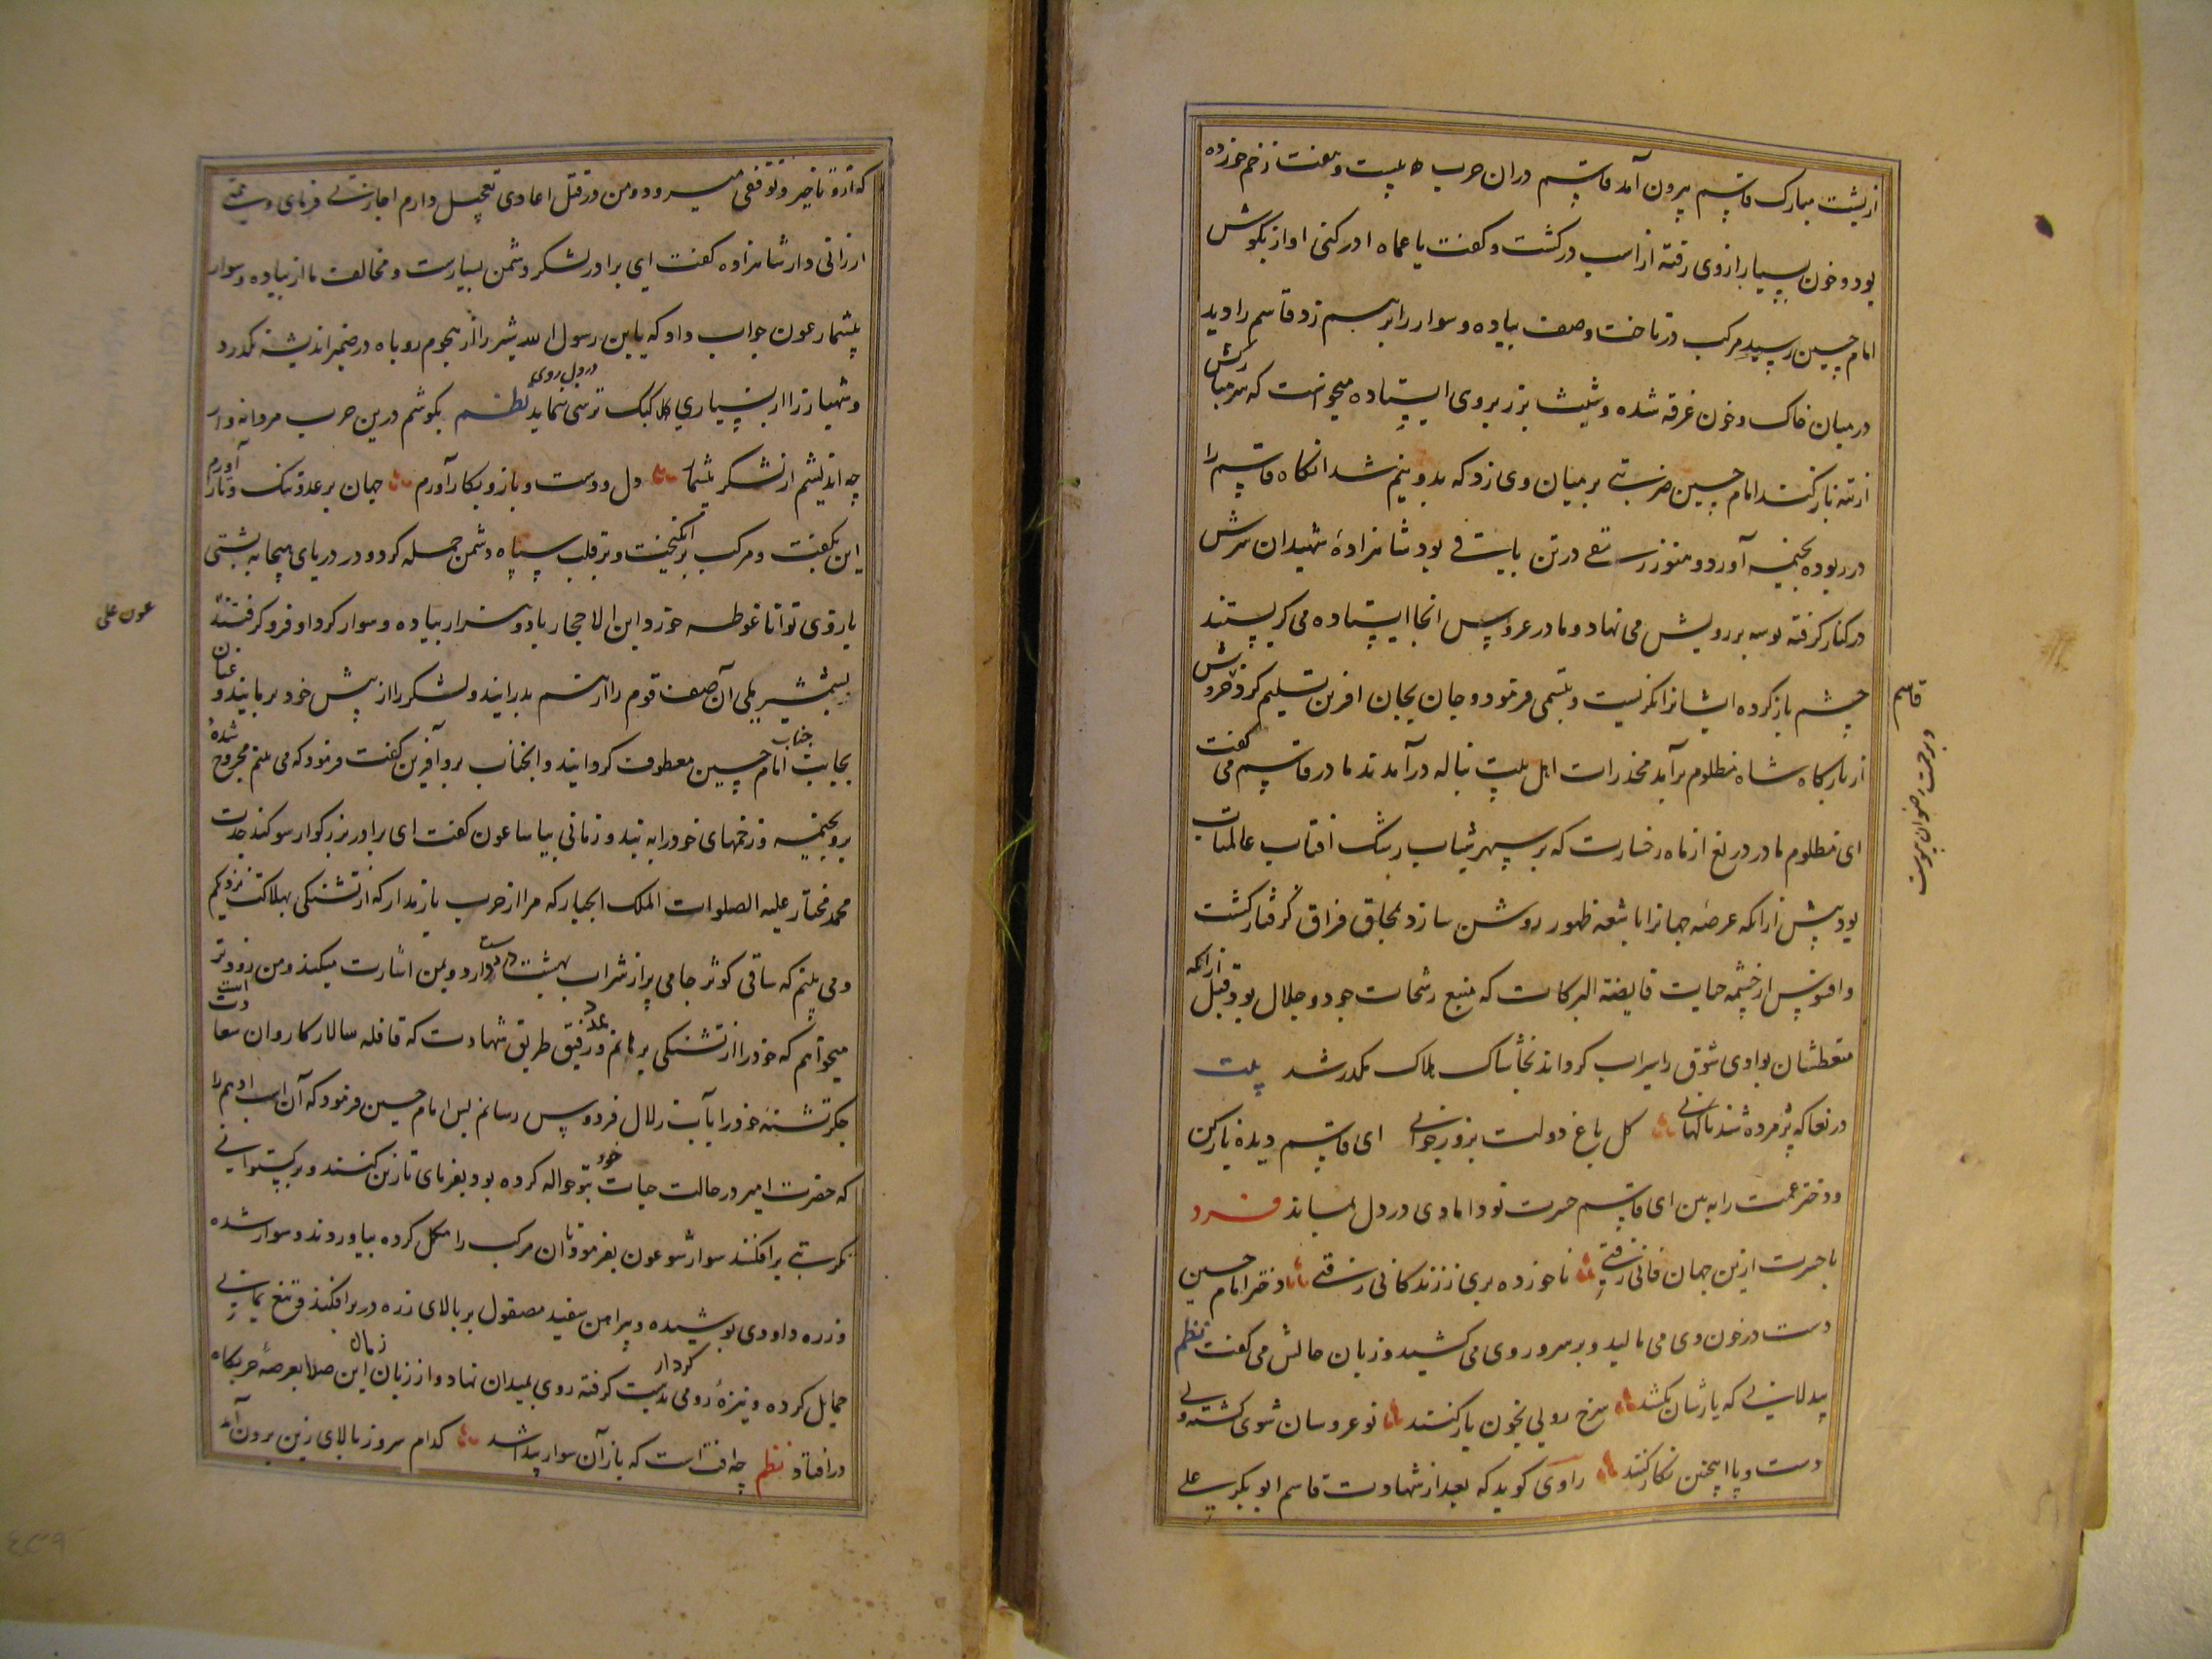 از پشت مبارک قاسم بیرون آمد قاسم دران حرب بیست و هفت زخم خورده
بود و خون بسیار ازوی رفته از اسب در کشت و کفت یا عماه ادرکنی اواز بکوش
امام حسین رسید مرکب در تاخت وصف پیاده و سوار را برهم زد قاسم را دید
در میان خاک و خون غرقه شده و شیث بر زبر وی ایستاده میخواست که سر مبارکش
از تن باز کند امام حسین ضربتی بر میان وی زد که بدو نیم شد انکاه قاسم را
در ربوده بخیمه آورد و هنوز رمقی در تن باقی بود شاهزادهٔ شهیدان سرش
در کنار کرفته بوسه بر رویش می نهاد و مادر عروس انجا ایستاده می کریستند
چشم باز کرده ایشانرا نکریست و تبسمی فرمود و جان بجان افرین تسلیم کرد خروش
از بارکاه شاه مظلوم برآمد مخدرات اهل بیت بناله درآمدند مادر قاسم می کفت
ای مظلوم مادر دریغ از ماه رخسارت که بر سپهر شباب رشک افتاب عالمتاب
بود پیش ازانکه عرصه جهانرا باشعه ظهور روشن سازد بمحاق فراق کرفتار کشت
وافسوس از چشمه حیات فایضة البرکات که منبع رشحات جود و جلال بود قبل ازانکه
متعطشان بوادی شوق را سیراب کرداند بخاشاک هلاک مکدر شد بیت
دریغا که پژمرده شد ناکهانی کل باغ دولت بروز جوانی ای قاسم دیده بازکن
و دختر عمت را به بین ای قاسم حسرت تو دامادی در دل بماند فرد
با حسرت ازین جهان فانی رفتی ناخورده بری ز زندکانی رفتی دختر امام حسین
دست در خون وی می مالید و بر سر و روی می کشید و زبان حالش می کفت نظم
بیدلانی که یارشان بکشند سرخ رویی بخون یار کنند نو عروسان شوی کشته ولی
دست و پا اینچنین نکار کنند راوی کوید که بعد از شهادت قاسم ابو بکر بن علی
قاسم
و برحمت رضوان پیوست
که ازو تاخیر و توقفی میرود و من در قتل اعادی تعجیل دارم اجازتی فرمای و همتی
ارزانی دار شاهزاده کفت ای برادر لشکر دشمن بسیارست و مخالفت ما از پیاده و سوار
بیشمار عون جواب داد که یابن رسول الله شیر را از هجوم روباه در ضمیر اندیشه نکذرد
و شهباز را از بسیاری کبک ترسی ننماید در دل روی نظم بکوشم درین حرب مردانه وار
چه اندیشم از لشکر بیشمار دل و دست و بازو بکار آورم جهان بر عدو تنک و تار آورم
این بکفت و مرکب برانکیخت و بر قلب سپاه دشمن حمله کرد و در دریای هیجا به پشتی
بازوی توانا غوطه خورد ابن الاحجار با دو هزار پیاده و سوار کرد او فرو کرفتند
بشمشیر یلی آن صف قوم را از هم بدرانید و لشکر را از پیش خود برمانید و عنان
بجانب جناب امام حسین معطوف کردانید و انجناب برو آفرین کفت فرمود که می بینم مجروح شدهٔ
برو بخیمه و زخمهای خود را به بند و زمانی بیاسا عون کفت ای برادر بزرکوار سوکند جدت
محمد مختار علیه الصلوات الملک الجبار که مرا از حرب باز مدار که از تشنکی بهلاکت نزدیکم
و می بینم که ساقی کوثر جامی پر از شراب بهشت در دست دارد و بمن اشارت میکند و من زودتر
میخواهم که خود را از تشنکی برهانم و رفیق طریق شهادت که قافله سالار کاروان سعادت است
جکر تشنهٔ خود را بآب زلال فردوس رسانم پس امام حسین فرمود که آن اسب ادهم را
که حضرت امیر در حالت حیات خود بتو حواله کرده بود بفرمای تا زین کنند و برکستوانی
بر افکنند سوار شو عون بفرمود تا ان مرکب را مکمل کرده بیاوردند و سوار شده
و زره داودی پوشیده و پیراهن سفید مصقول بر بالای زره در بر افکند و تیغ یمانی
حمایل کرده و نیزهٔ رومی بدست کرفته روی بمیدان نهاد و از زبان این صدا بعرصهٔ حربکاه
در افتاد نظم چه افتاست که باز آن سوار پیدا شد کدام سرو ز بالای زین برون آمد
عون علی